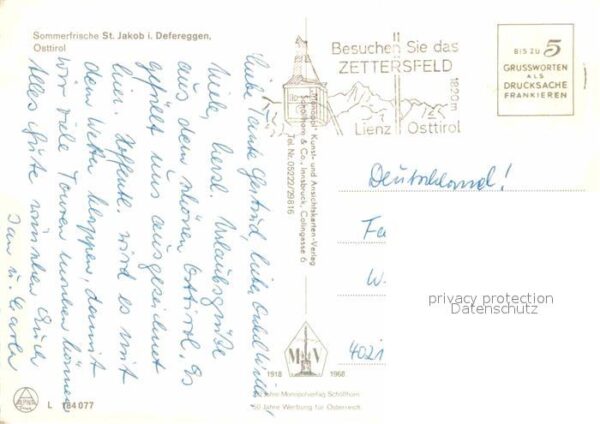 Sommerfrische St. Jakob i. Defereggen,
Osttirol
Liebe Tante Gertrud, lieber Onkel Willi!
Viele, herzl. Urlaubsgrüße
aus dem schönen Osttirol. Es
gefällt uns ausgezeichnet
hier. Hoffentl. wird es mit
dem Wetter klappen, damit
wir viele Touren machen können
Alles Gute wünschen Euch
u.
Besuchen Sie das
ZETTERSFELD
1820m
Lienz Osttirol
BIS ZU 5
GRUSSWORTEN
ALS
DRUCKSACHE
FRANKIEREN
"Monopol" Kunst- und Ansichtskarten-Verlag
Schöllhorn & Co., Innsbruck, Colingasse 6
Tel. Nr. 05222/29816
Deutschland!
Fa
W.
4021
privacy protection
Datenschutz
M V
1918 1968
Jahre Monopolverlag Schöllhorn
50 Jahre Werbung für Österreich
L 184 077